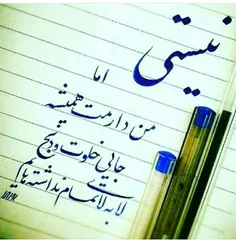 نیستی
اما
من دارمت همیشه
جایی خلوت و دنج
لا به لای
تمام نداشته هایم